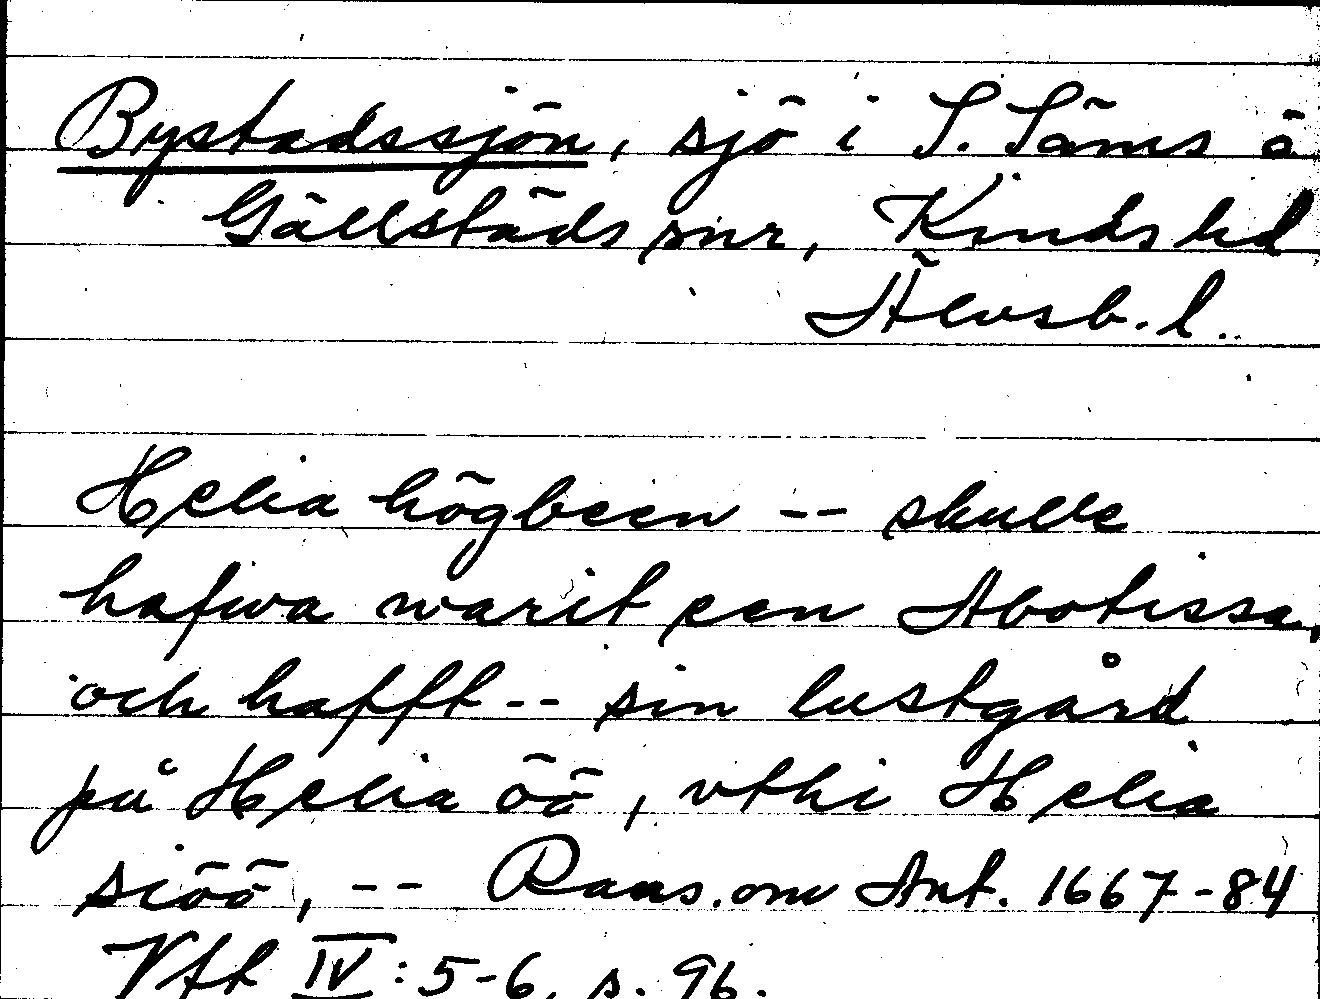 Bystadssjön, sjö i S. Säms ä
Gällstads snr, Kinds hd
Älvsb. l.
Helia högbeen -- skulle
hafwa warit een Abotissa,
och hafft -- sin lustgård
på Helia öö, vthi Helia
siöö, -- Rans. om Ant. 1667-84
Vft IV: 5-6, s. 96.